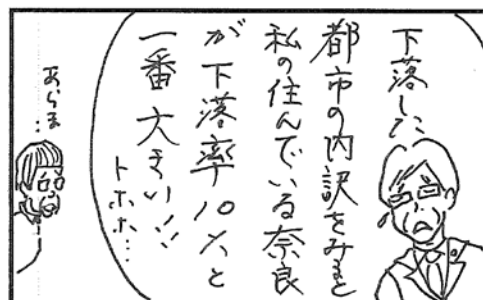 下落した
都市の内訳をみると
私の住んでいる奈良
が下落率10%と
一番大きい!!
トホホ…
あらま…